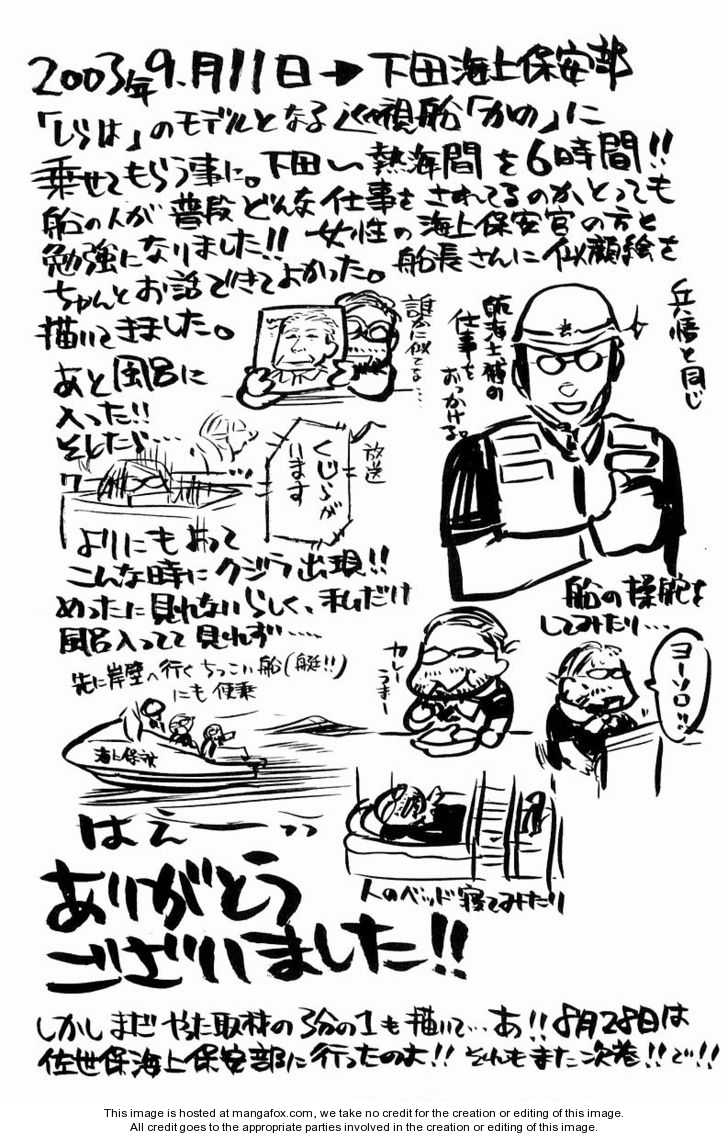 2003年9月11日→下田海上保安部
「しらは」のモデルとなる巡視船「かの」に
乗せてもらう事に。下田〜熱海間を6時間!!
船の人が普段どんな仕事をされてるのか、とっても
勉強になりました!! 女性の海上保安官の方と
ちゃんとお話できてよかった。船長さんに似顔絵を
描いてきました。
誰かに似てる…
航海士補の
仕事を
おっかける。
兵悟と同じ
あと風呂に
入った!!
そしたら…
放送
くじらが
います
よりにもよって
こんな時にクジラ出現!!
めったに見れないらしく、私だけ
風呂入ってて見れず……
船の操舵を
してみたり…
ヨーソロ!!
カレー
うまー
先に岸壁へ行くちっこい船(艇!!)
にも便乗
海上保安
はえーーっっ
人のベッド寝てみたり
ありがとう
ございました!!
しかしまだやった取材の3分の1も描いて…あ!!8月28日は
佐世保海上保安部に行ったのよ!! それもまた次巻!!で!!
This image is hosted at mangafox.com, we take no credit for the creation or editing of this image.
All credit goes to the appropriate parties involved in the creation or editing of this image.